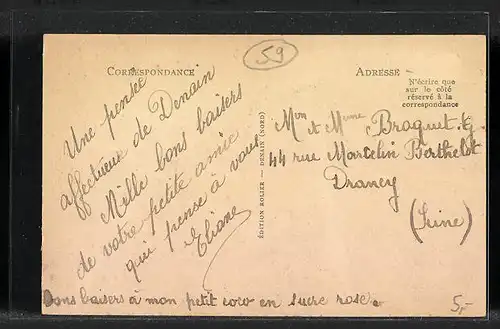 59
CORRESPONDANCE
ADRESSE
N'écrire que
sur le côté
réservé à la
correspondance
Une pensée
affectueuse de Denain
Mille bons baisers
de votre petite amie
qui pense à vous
Eliane
ÉDITION ROLIER - DENAIN (NORD)
Mon et Mme Braquet. G
44 rue Marcelin Berthelot
Drancy
(Seine)
Bons baisers à mon petit coco en sucre rose.
5,-